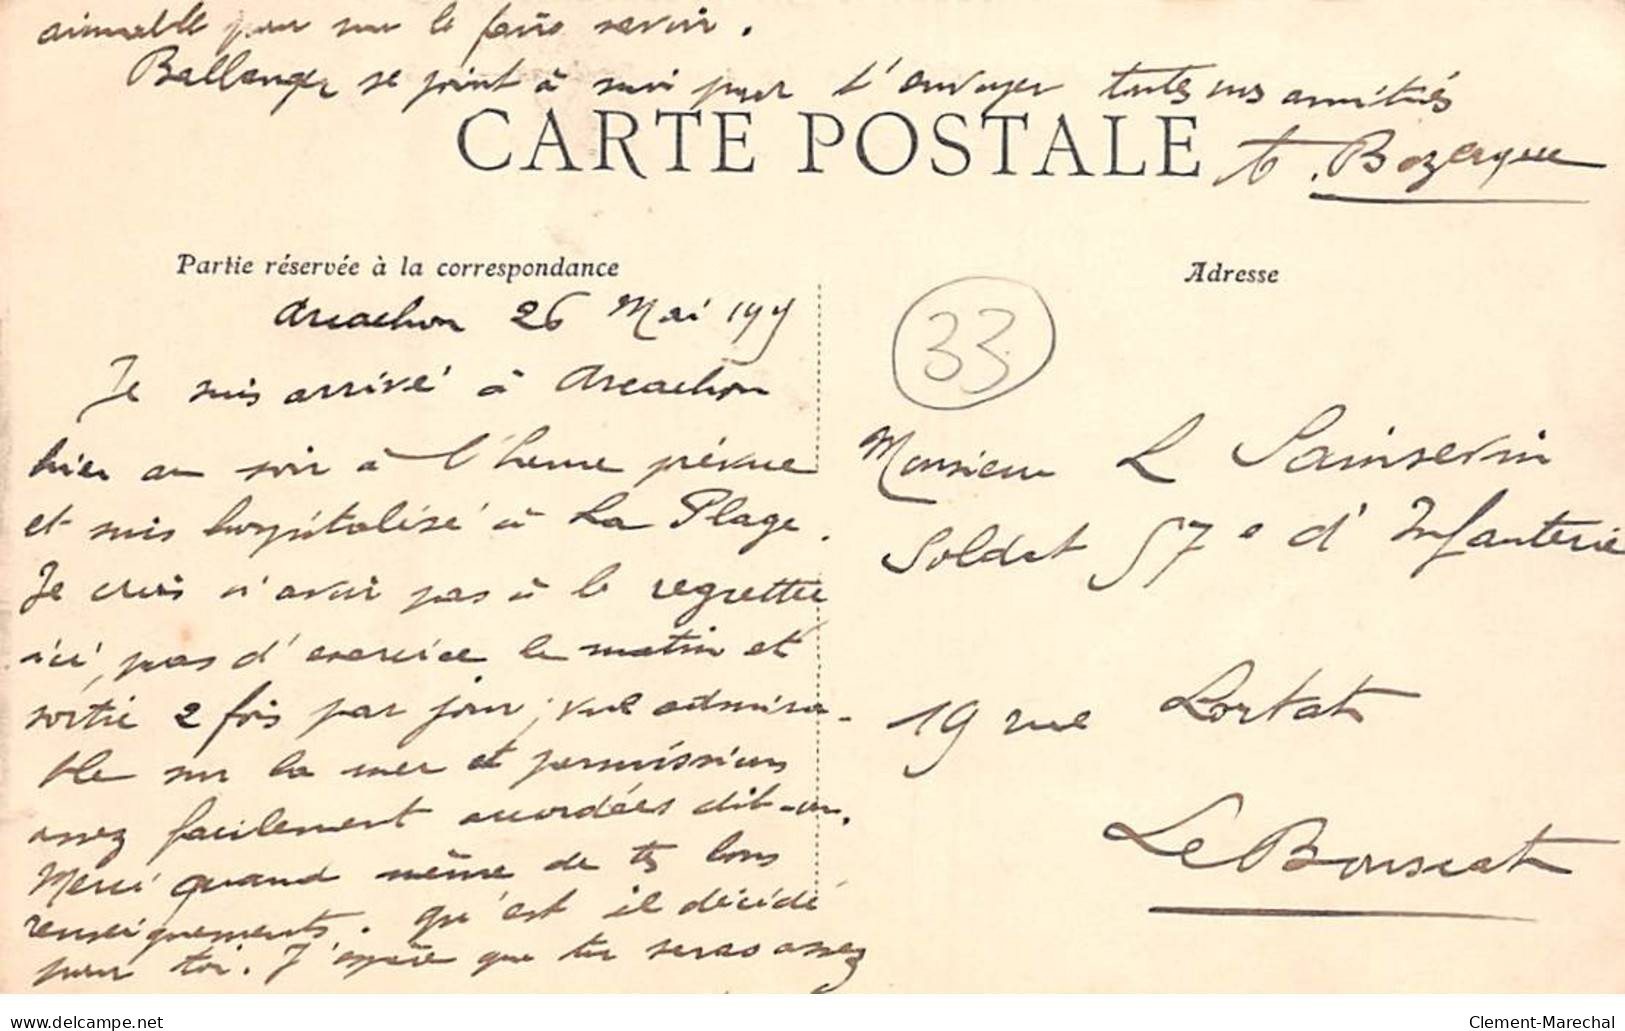 CARTE POSTALE
Partie réservée à la correspondance
Arcachon 26 Mai
Je suis arrivé à Arcachon
hier au soir à l'heure prévue
et suis hospitalisé à La Plage.
Je crois n'avoir pas à le regretter
ici, pas d'exercice le matin et
sortie 2 fois par jour, vue admira-
ble sur la mer et permissions
assez facilement accordées dit-on.
Merci quand même de tes bons
renseignements. qu'est il décidé
pour toi. J'espère que tu seras assez
aimable pour me le faire savoir.
Ballanger se joint à moi pour t'envoyer toutes nos amitiés
Bozergue
Adresse
33
Monsieur L Sainsevin
Soldat 57e d'Infanterie
19 rue Lortat
Le Bouscat
www.delcampe.net
Clement-Marechal